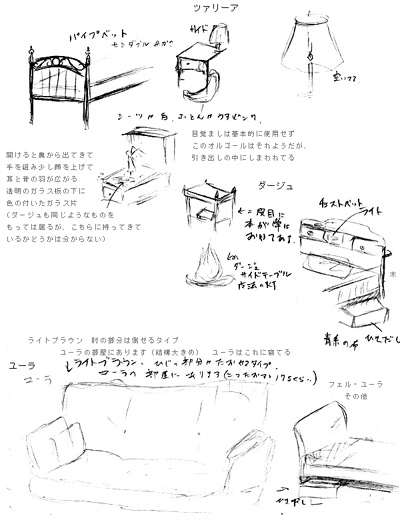 ツァリーア
パイプベット
セミダブル
サイド
シーツが白、ふとんがうすピンク。
目覚ましは基本的に使用せず
このオルゴールはそれようだが、
引き出しの中にしまわれてる
開けると奥から出てきて
手を組み少し顔を上げて
耳と背の羽が広がる
透明のガラス板の下に
色の付いたガラス片
(ダージュも同じようなものを
もっては居るが、こちらに持ってきて
いるかどうかは分からない)
ダージュ
ライト
ダージュ
サイドテーブル
ひきだし
ライトブラウン 肘の部分は倒せるタイプ
ユーラの部屋にあります(結構大きめ) ユーラはこれに寝てる
ユーラ
ユーラ
ライトブラウン、ひじの部分がたおせるタイプ
ユーラの部屋にあります
フェル・ユーラ
その他